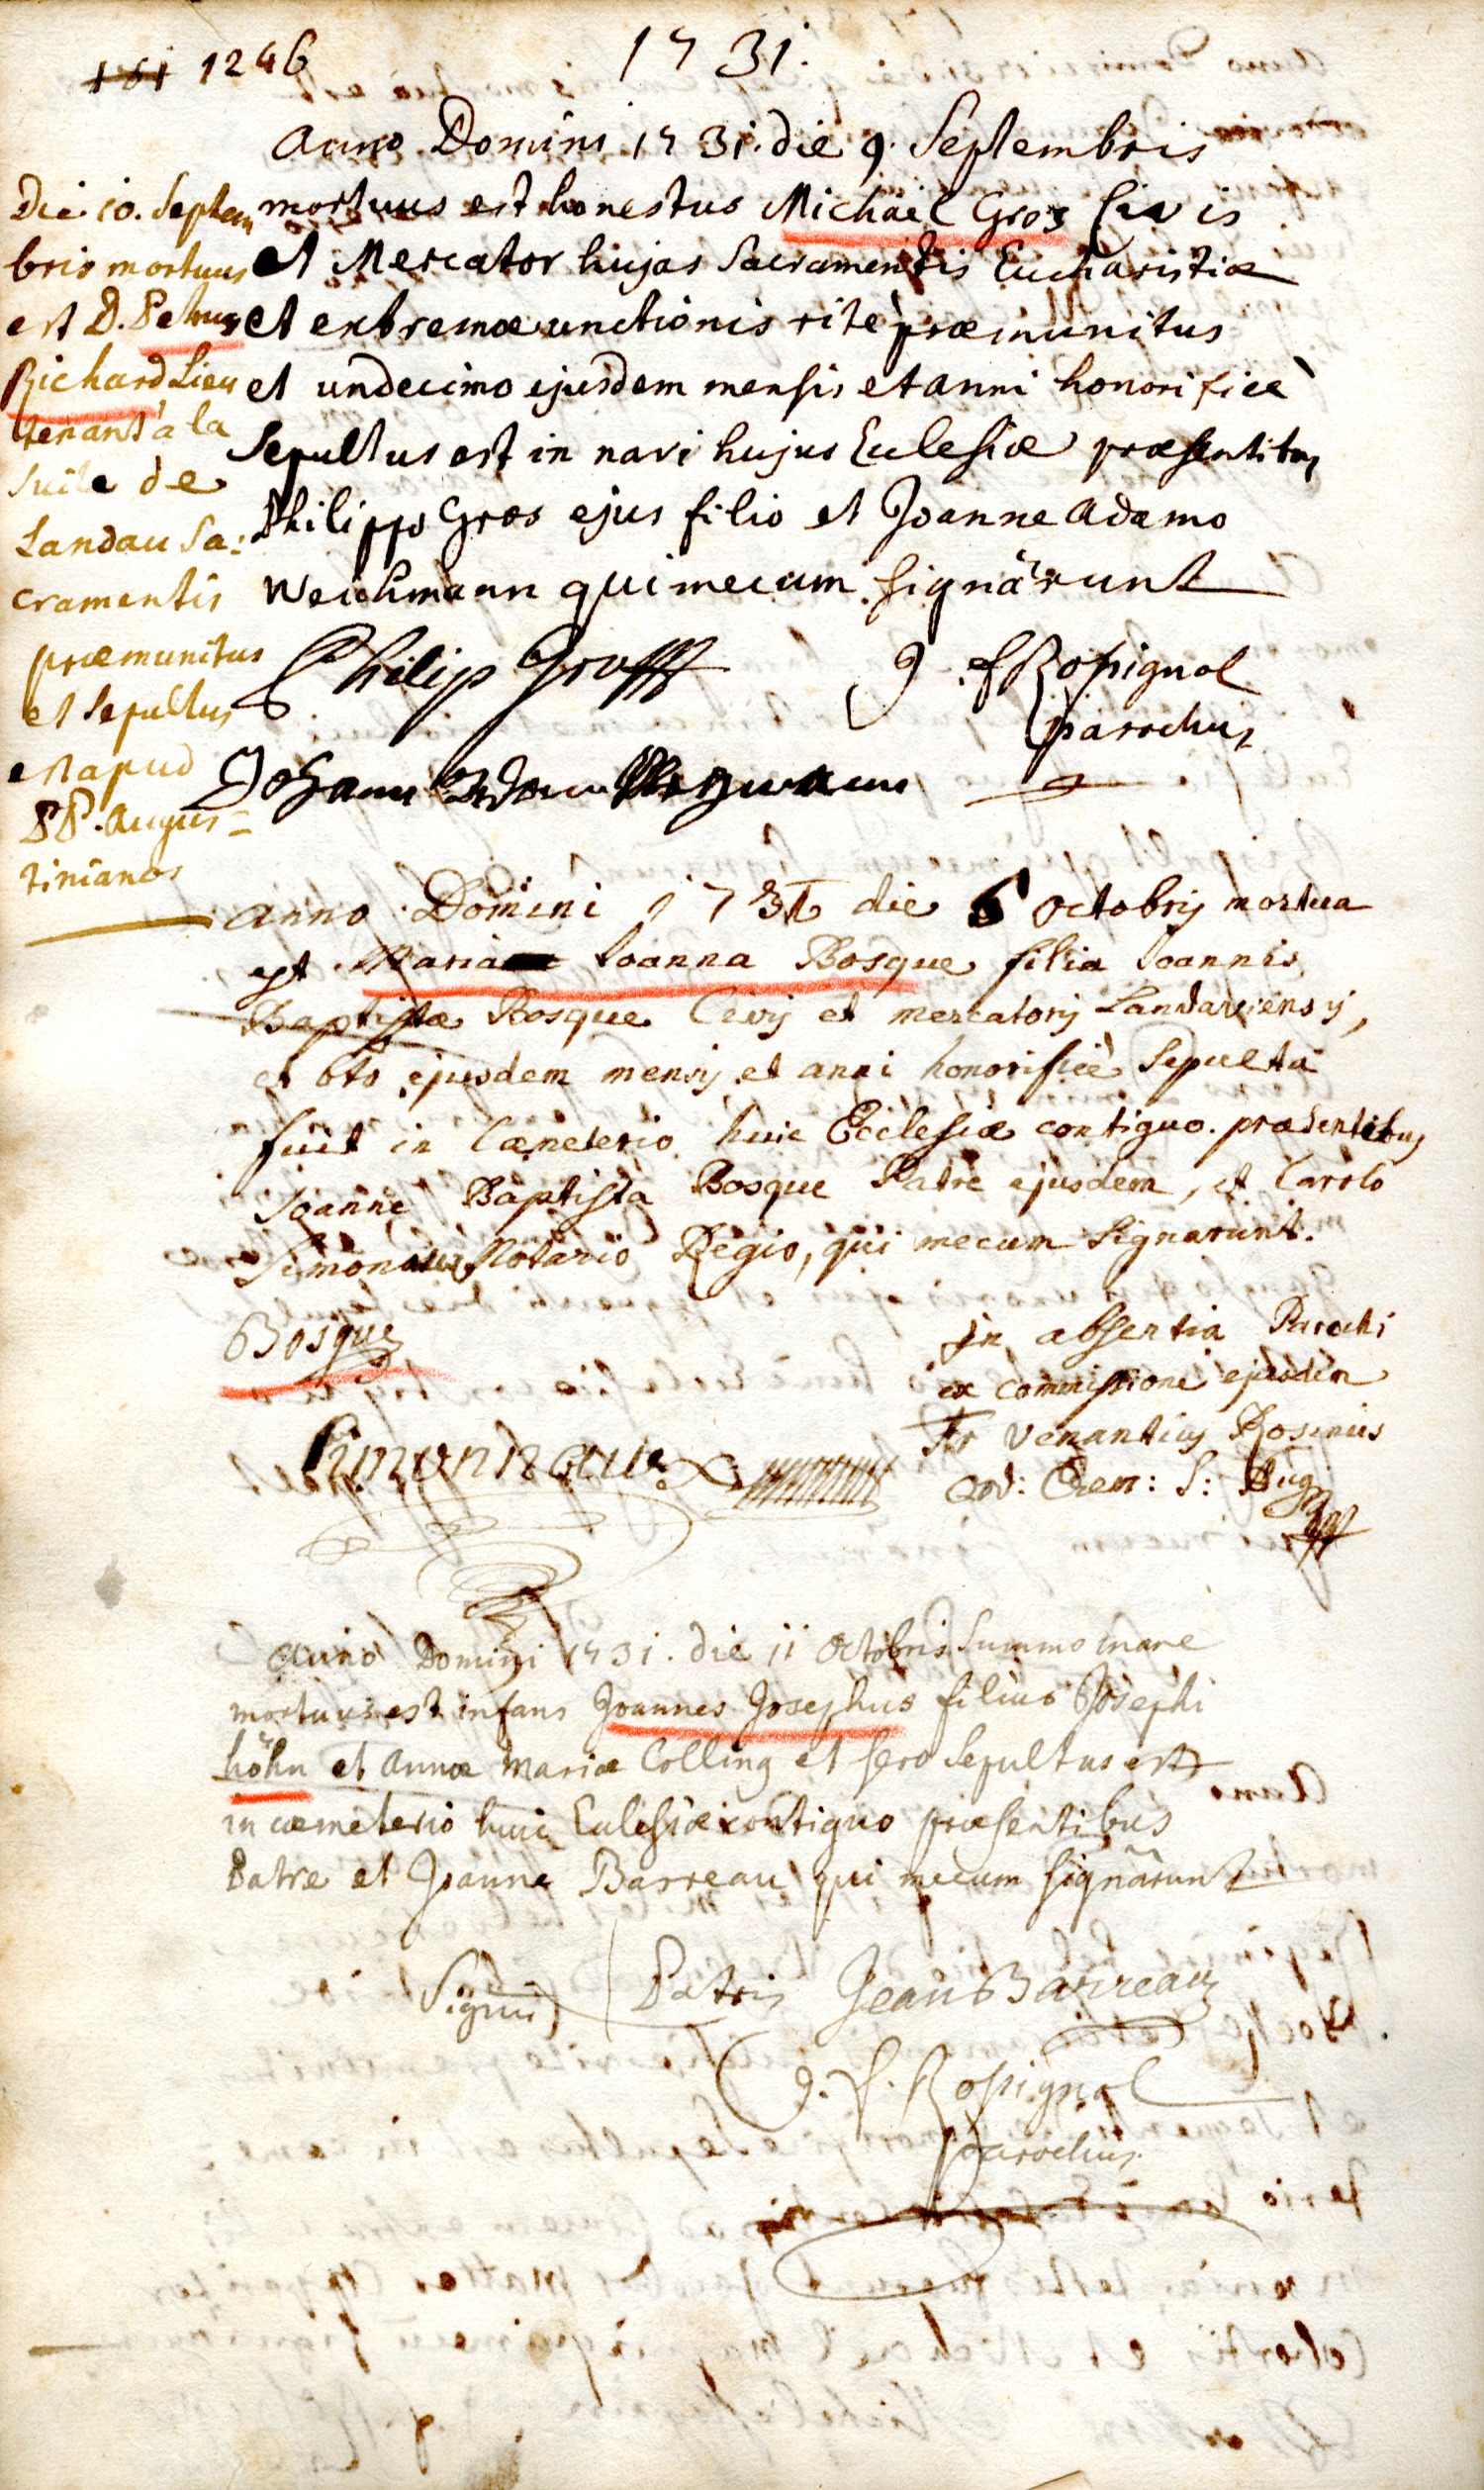 151 1246
1731.
Anno Domini 1731. die 9. Septembris
mortuus est honestus Michäel Gros Civis
et Mercator hujas Sacramentis Eucharistiæ
et extremæ unctionis ritè præmunitus
et undecimo ejusdem mensis et anni honorificè
Sepultus est in navi hujus Ecclesiæ præsentibus
Philippo Gros ejus filio et Joanne Adamo
Weichmann qui mecum signârunt
Philip Groff
J. f Rossignol
parochus
Johann Adam
Die 10. Septem
bris mortuus
est D. Petrus
Richard Lieu
tenant à la
suite de
Landau Sa:
cramentis
præmunitus
et Sepultus
est apud
PP. Augus=
tinianos
anno Domini 1731 die 6 octobris mortua
est Maria Ioanna Bosque filia Ioannis
Baptistæ Bosque Civis et mercatoris Landaviensis,
et 8to ejusdem mensis et anni honorificè Sepulta
fuit in Cæmeterio huic Ecclesiæ contiguo. præsentibus
Joanne Baptista Bosque Patre ejusdem, et Carolo
Simonaux Notario Regio, qui mecum Signarunt.
Bosque
Simonneaux
in absentia Parochi
ex commissione ejusdem
Fr Venantius Rosinus
ord: Erem: S: Aug
Anno Domini 1731. die 11 Octobris Summo mane
mortuus est infans Joannes Josephus filius Josephi
höhn et Annæ Mariæ Colling et sero Sepultus est
in cæmeterio huic Ecclesiæ contiguo præsentibus
Patre et Joanne Barreau qui mecum signârunt
Signū Patris Jean Barreau
J. f. Rossignol
parochus